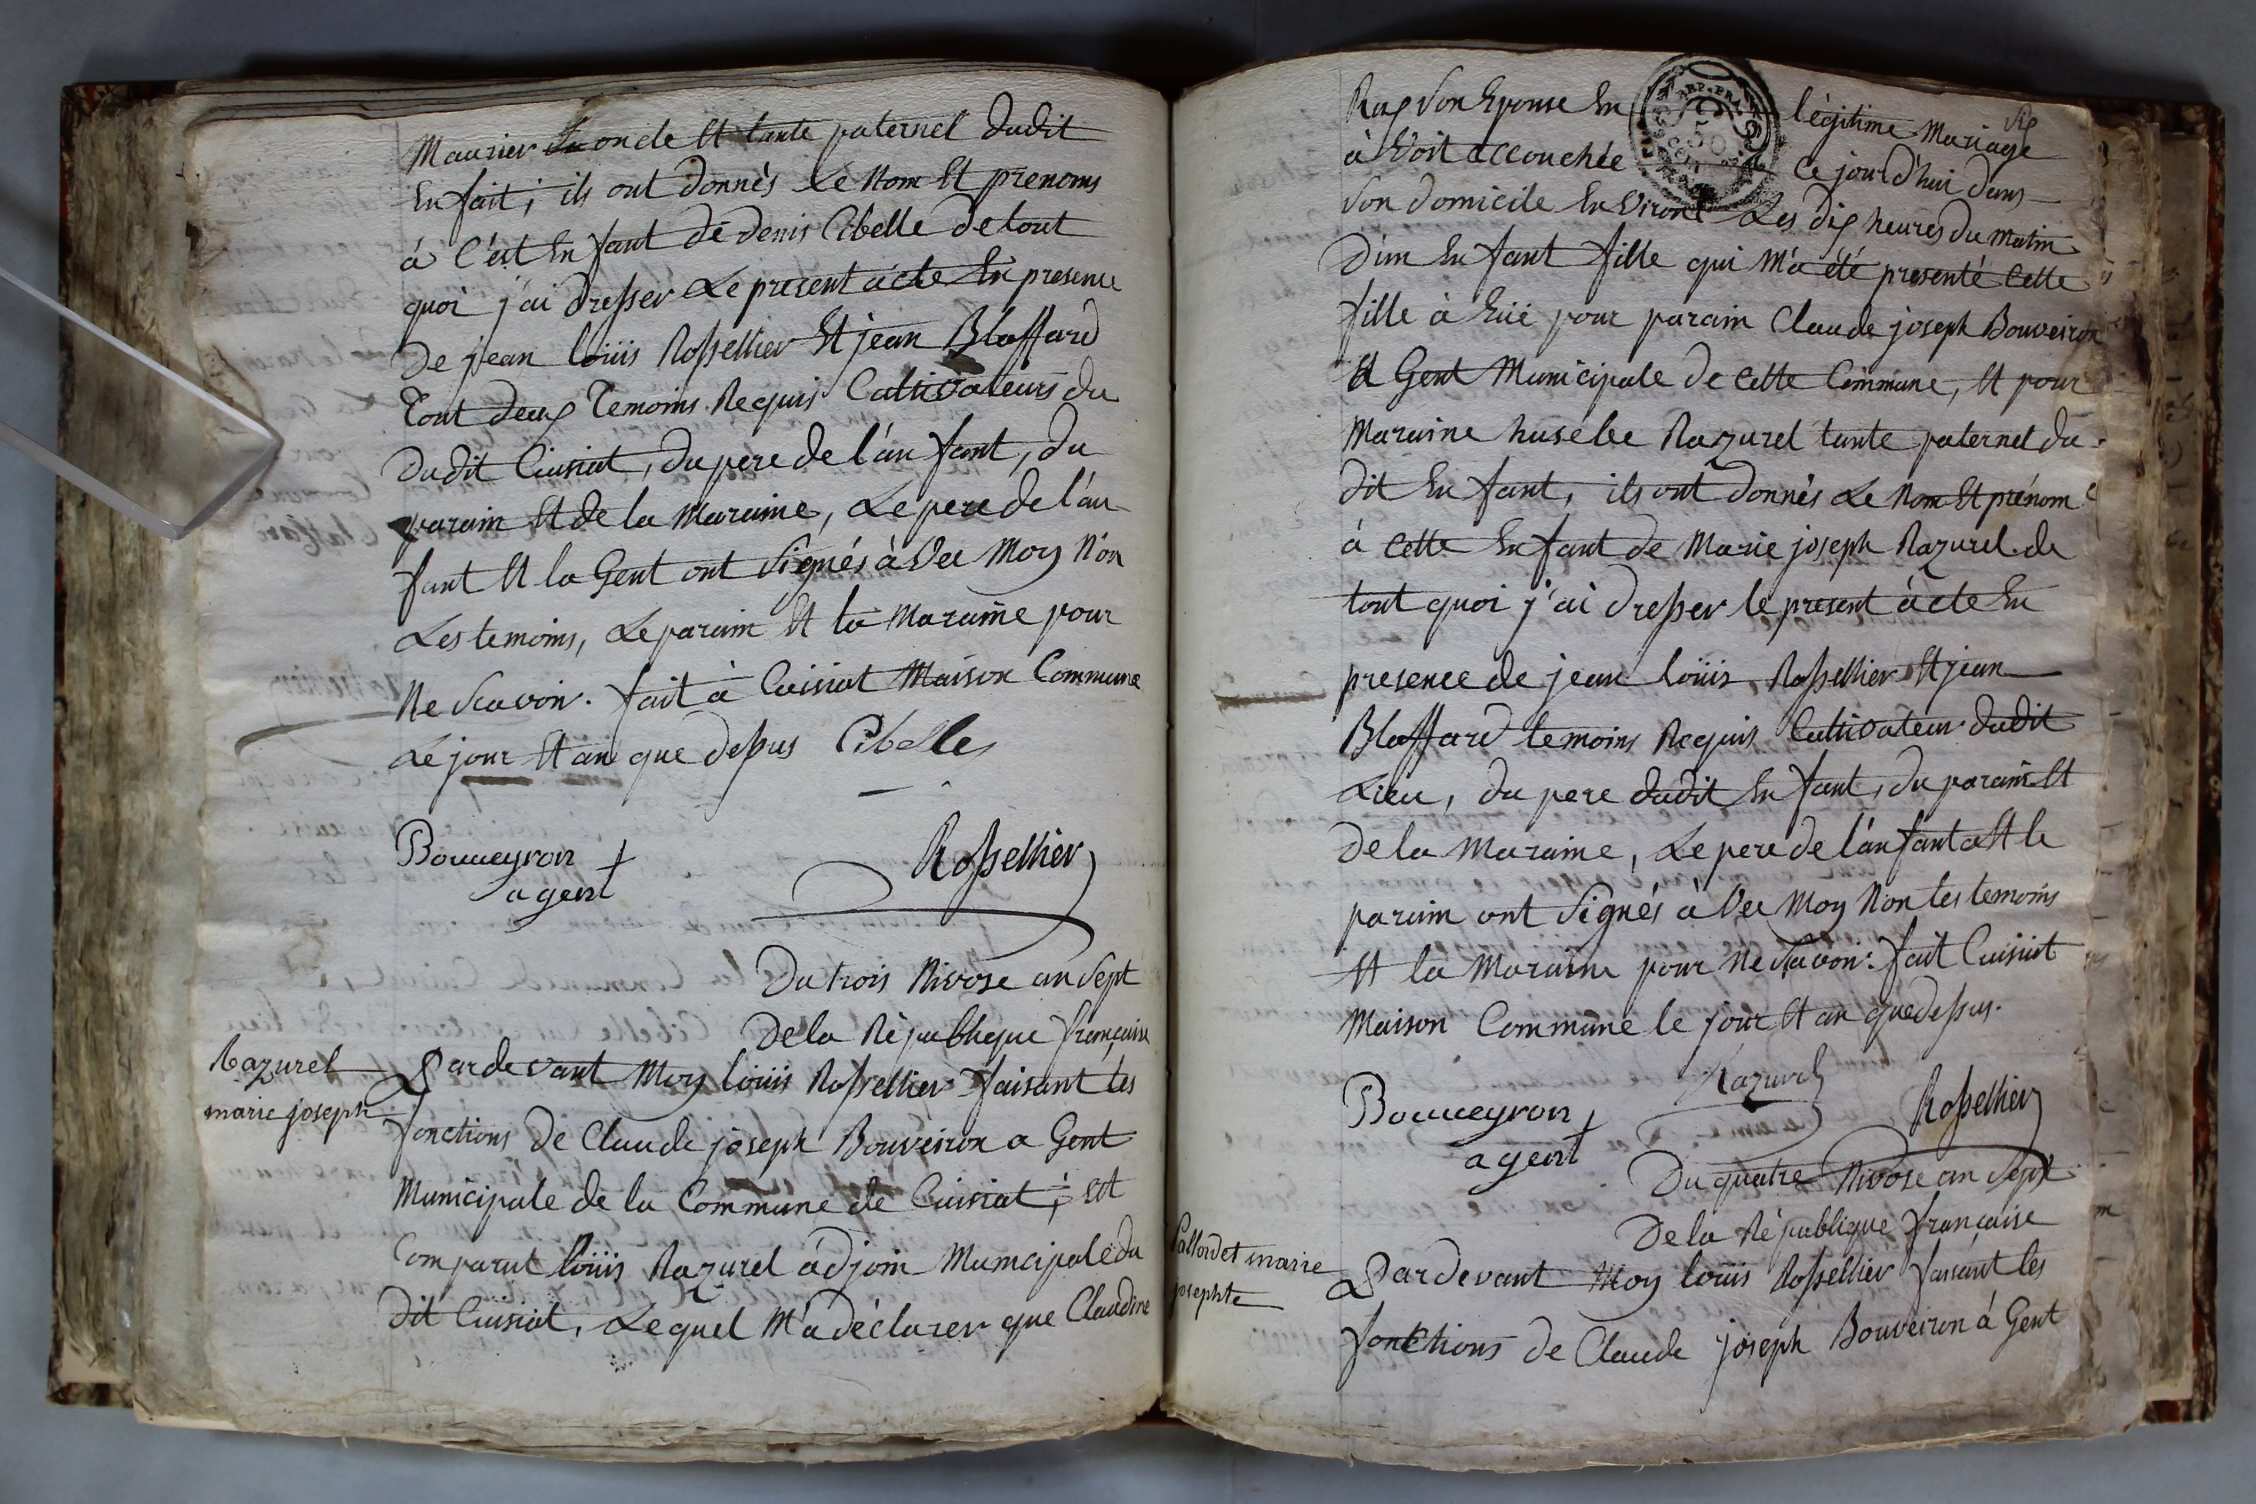 Maurier oncle Et tante paternel dudit
Enfait; ils ont donnés Le Nom Et prenoms
à C'est Enfant de Denis Cibelle de tout
quoi j'ai dresser Le present acte En presence
De jean loüis Rossellier Et jean Blaffard
Tout deux Temoins Requis Cultivateurs du
Dudit Cuisiat, du pere de l'an fant, du
parain Et de la Maraine, Le pere de l'an
fant Et la Gent ont Signés à Vec Moy Non
Les temoins, Le parain Et la Maraine pour
Ne Scavoir. fait à Cuisiat Maison Commune
Le jour Et an que dessus Cibelle
Bouueyron
agent
Rossellier
Du trois Nivose an Sept
De la République française
Razurel
marie joseph
Pardevant Moy loüis Rossellier faisant les
fonctions de Claude joseph Bouveiron a Gent
Municipale de la Commune de Cuisiat; Est
Comparut loüis Razurel adjoin Municipale du
Dit Cuisiat, Lequel M'a déclarer que Claudine
Rux Son Epouse En légitime Mariage
à Voit accouchée Ce jourd'hui dans
Son domicile Environt Les dix heures du Matin
D'un Enfant fille qui M'a été presenté Cette
fille à Eüe pour parain Claude joseph Bouveiron
A Gent Municipale de Cette Commune, Et pour
Maraine husebe Razurel tante paternel du
dit Enfant, ils ont donnés Le Nom Et prénom
à Cette Enfant de Marie joseph Razurel. de
tout quoi j'ai dresser le present acte En
presence de jean loüis Rossellier Et jean
Blaffard temoins Requis Cultivateur dudit
Lieu, du pere dudit Enfant, du parain Et
De la Maraine, Le pere de l'anfant Et le
parain ont Signés à Vec Moy Non les temoins
Et la Maraine pour Ne Savoir. fait Cuisiat
Maison Commune le jour Et an que dessus.
Razurel
Bouueyron
agent
Rossellier
Du quatre Nivose an Sept
De la République française
marie
josephte
Pardevant Moy loüis Rossellier faisant les
fonctions de Claude joseph Bouveiron à Gent